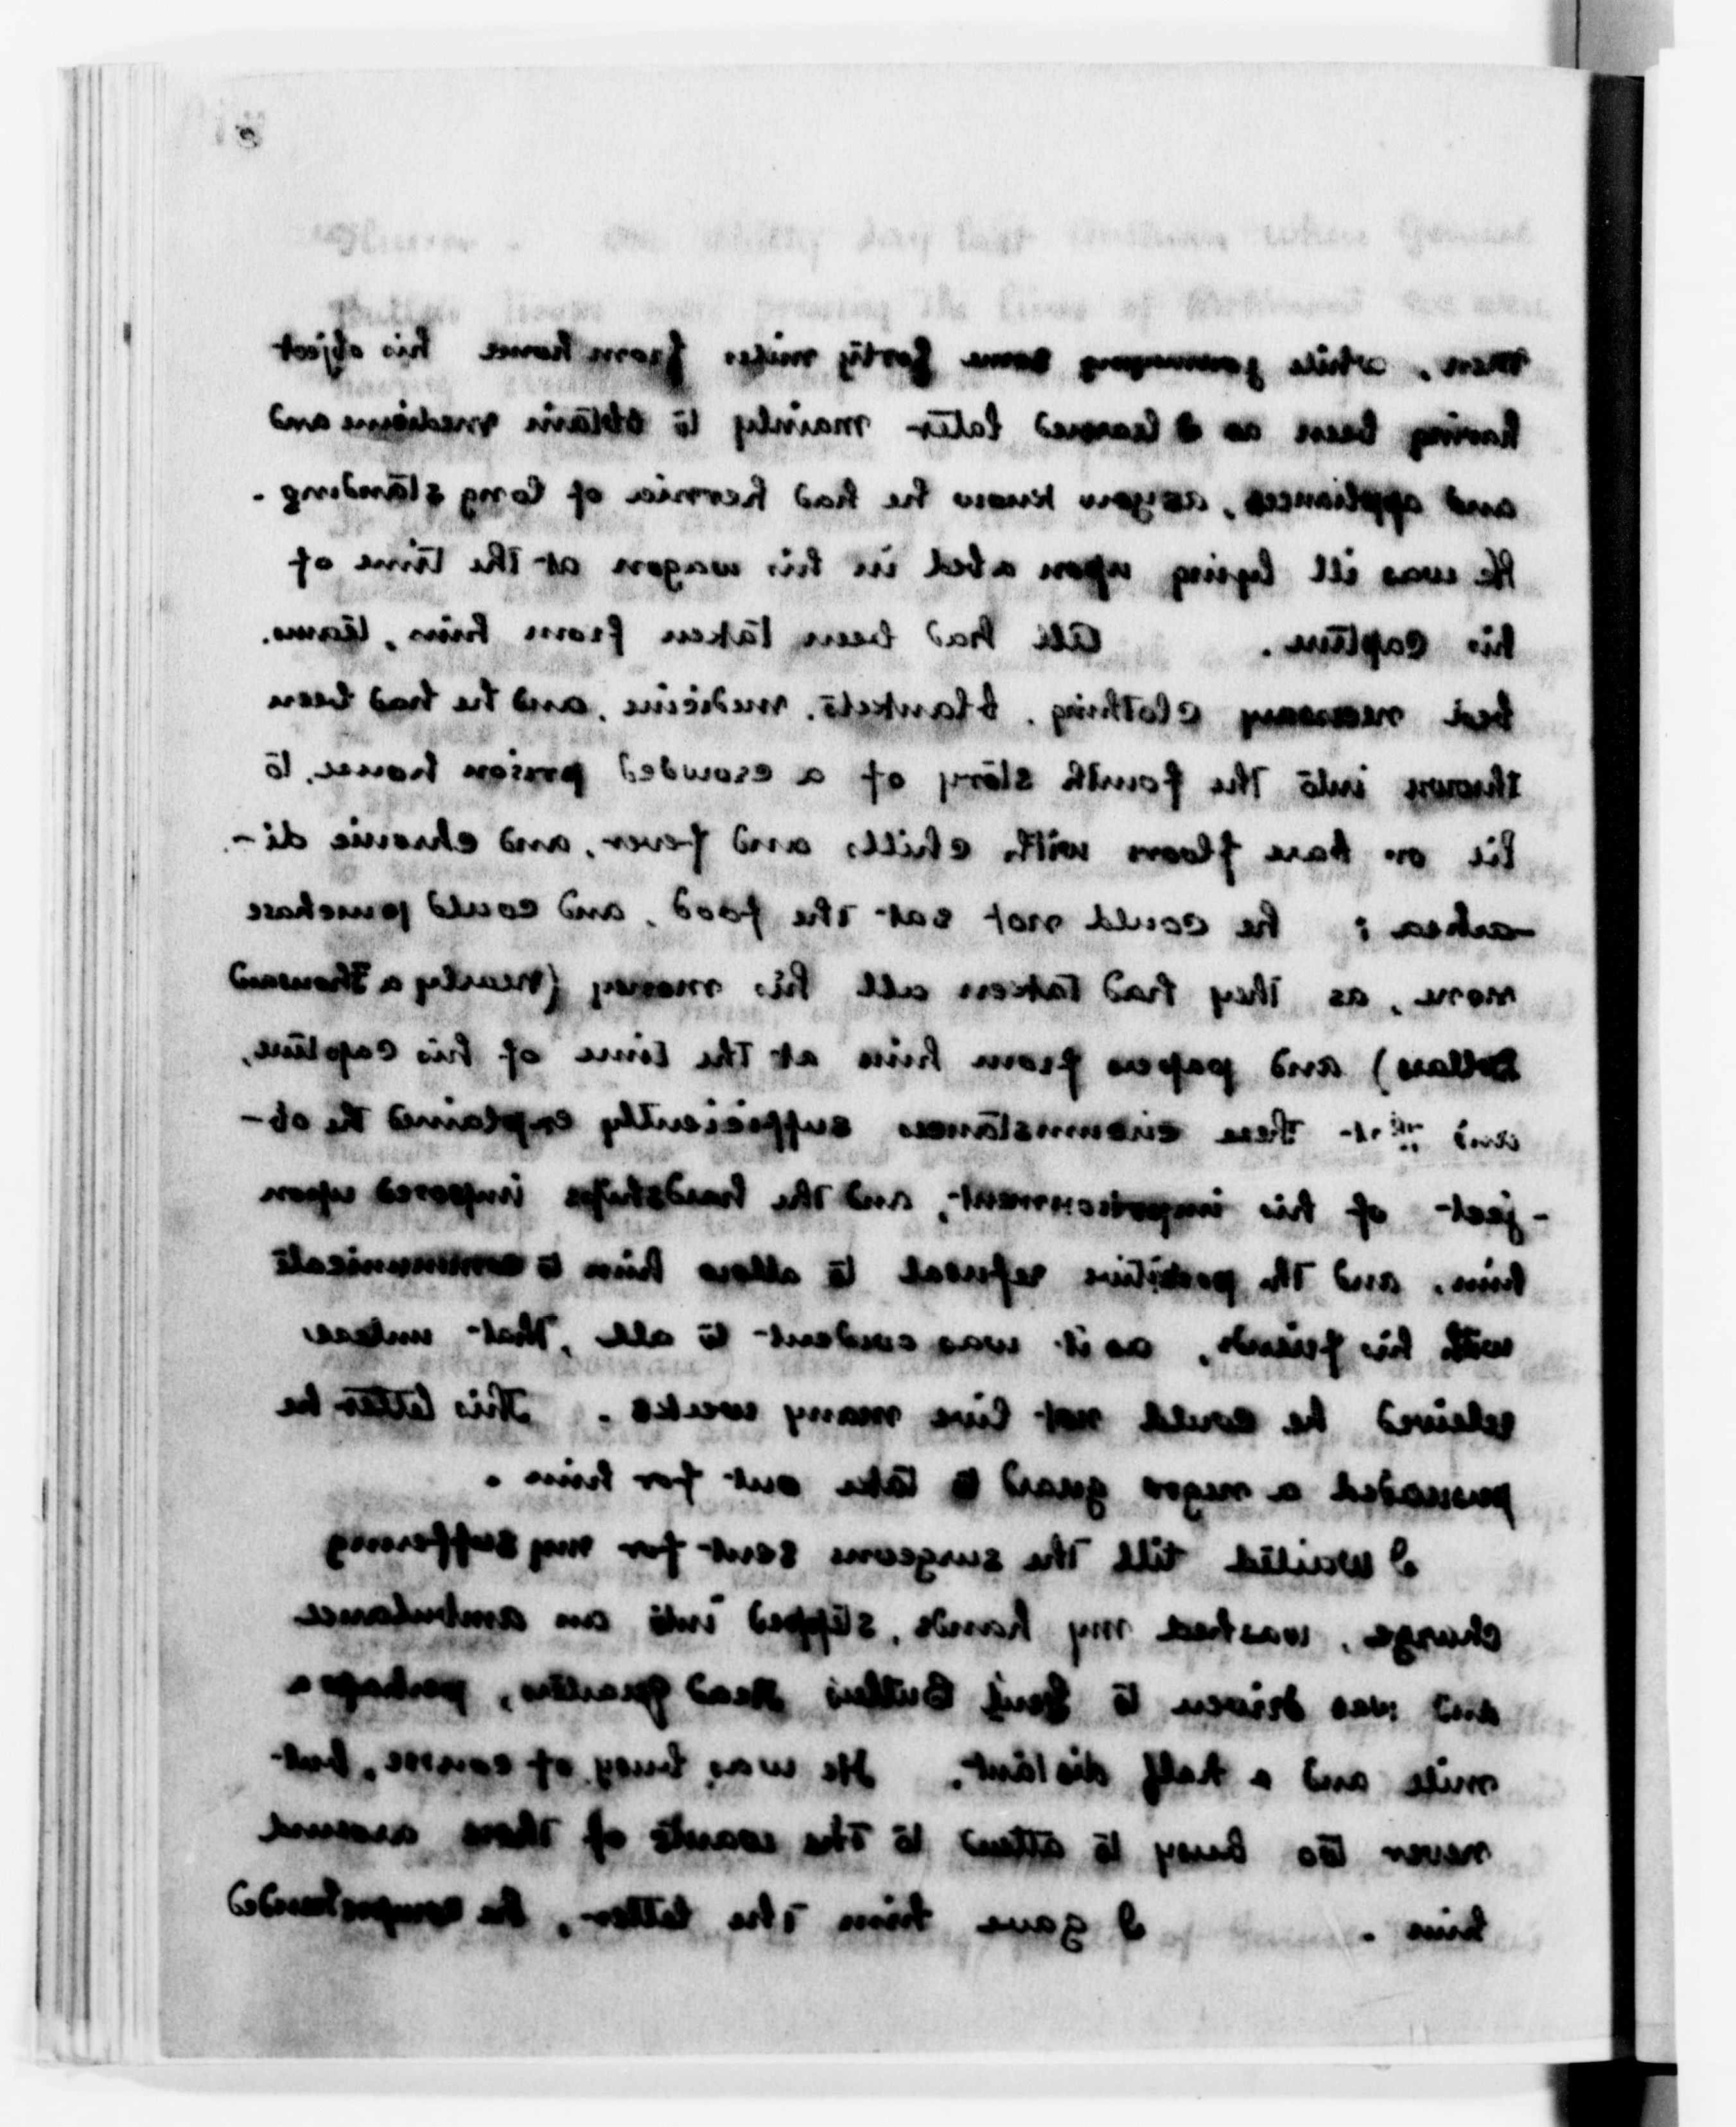 men, while journeying some forty miles from home his object
having been as I learned later mainly to obtain medicine and
and appliances, as you know he had hernia of long standing.
He was ill lying upon a bed in his wagon at the time of
his capture. All had been taken from him, teams,
bed necessary clothing, blankets, medicine, and he had been
thrown into the fourth story of a crowded prison house, to
lie on bare floors with chills and fever, and chronic di-
-arhea; he could not eat the food, and could purchase
none, as they had taken all his money (nearly a Thousand
Dollars) and papers from him at the time of his capture,
and that these circumstances sufficiently explained the ob-
-ject of his imprisonment, and the hardships imposed upon
him, and the positive refusal to allow him to communicate
with his friends, as it was evident to all, that unless
releived he could not live many weeks. This letter he
persuaded a negro guard to take out for him.
I waited till the surgeons sent for my suffering
charge, washed my hands, stepped into an ambulance
and was driven to Genl Butlers Head Quarters, perhaps a
mile and a half distant. He was busy of course, but
never too busy to attend to the wants of those around
him. I gave him the letter, he comprehended